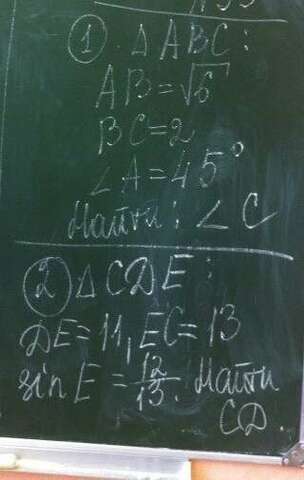 ① △ABC:
AB=√6
BC=2
∠A=45°
Найти: ∠C
② △CDE:
DE=11, EC=13
sin E = 12/13. Найти
CD.